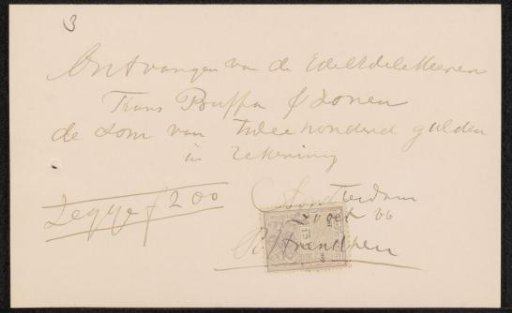 3
Ontvangen van de EdelEdele Heeren
Frans Buffa & Zonen
de som van twee honderd gulden
in rekening
Zegge f 200
Amsterdam
20 oct 86